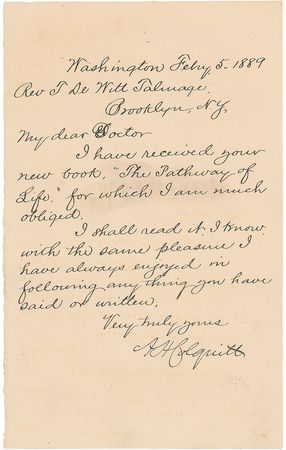 Washington Feby. 5. 1889
Rev T De Witt Talmage.
Brooklyn, N.Y.
My dear Doctor
I have received your
new book, "The Pathway of
Life," for which I am much
obliged.
I shall read it, I know,
with the same pleasure I
have always enjoyed in
following any thing you have
said or written.
Very truly yours
A H Colquitt